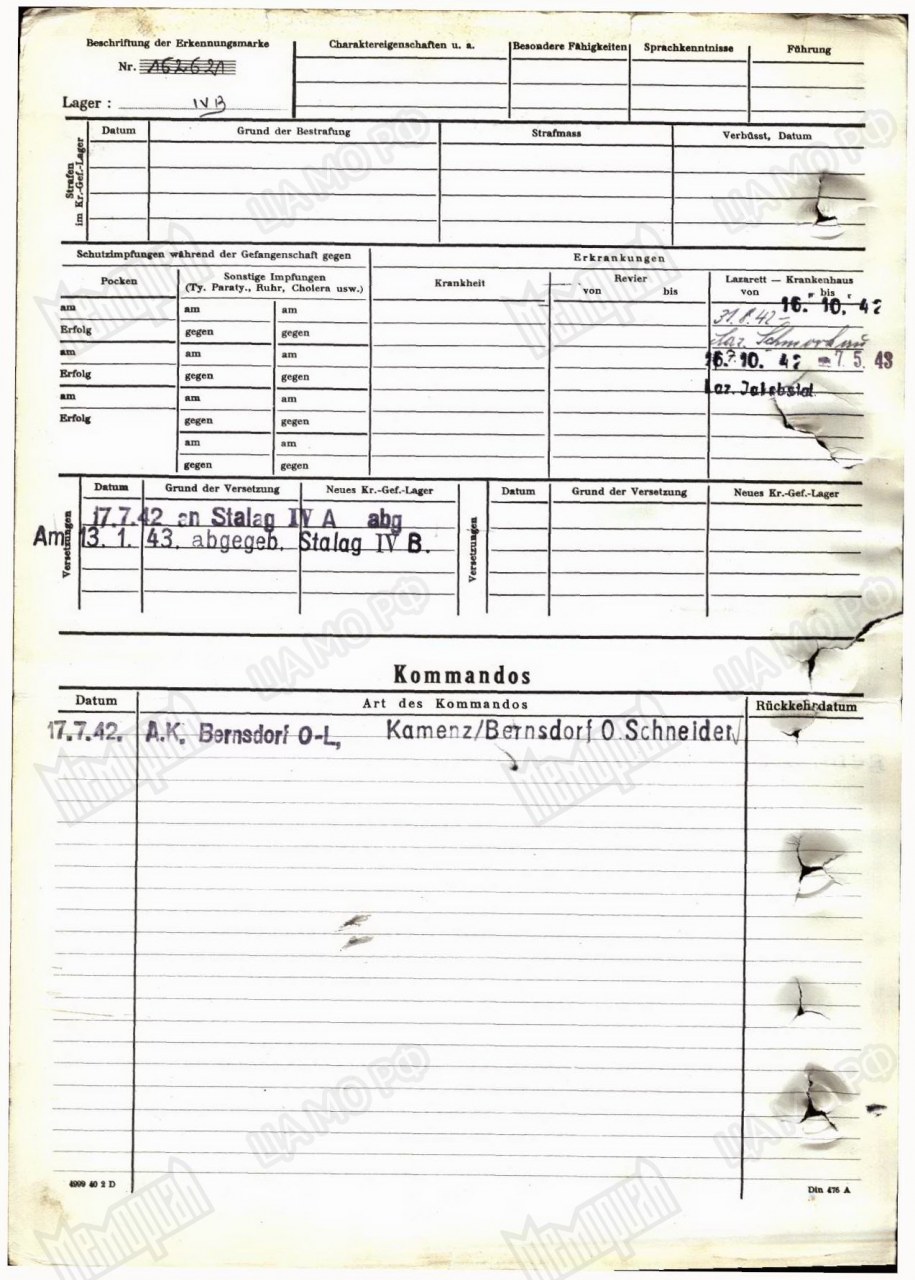 Beschriftung der Erkennungsmarke
Nr. 162621
Lager : IV B
Charaktereigenschaften u. a.
Besondere Fähigkeiten
Sprachkenntnisse
Führung
Strafen im Kr.-Gef.-Lager
Datum
Grund der Bestrafung
Strafmass
Verbüsst, Datum
Schutzimpfungen während der Gefangenschaft gegen
Erkrankungen
Pocken
Sonstige Impfungen
(Ty. Paraty., Ruhr, Cholera usw.)
Krankheit
Revier
von bis
Lazarett — Krankenhaus
von bis
am am am
16. 10. 42
31.8.42 –
Erfolg gegen gegen
Laz. Schmorkau
am am am
16. 10. 42 – 7. 5. 43
Erfolg gegen gegen
Laz.
am am am
Erfolg gegen gegen
am am
gegen gegen
Versetzungen
Datum
Grund der Versetzung
Neues Kr.-Gef.-Lager
17.7.42 an Stalag IV A abg
Am 13. 1. 43. abgegeb. Stalag IV B.
Versetzungen
Datum
Grund der Versetzung
Neues Kr.-Gef.-Lager
Kommandos
Datum
Art des Kommandos
Rückkehrdatum
17.7.42. A.K. Bernsdorf O-L, Kamenz/Bernsdorf O.Schneider
4999 40 2 D
Din 476 A
Мемориал
ЦАМО РФ